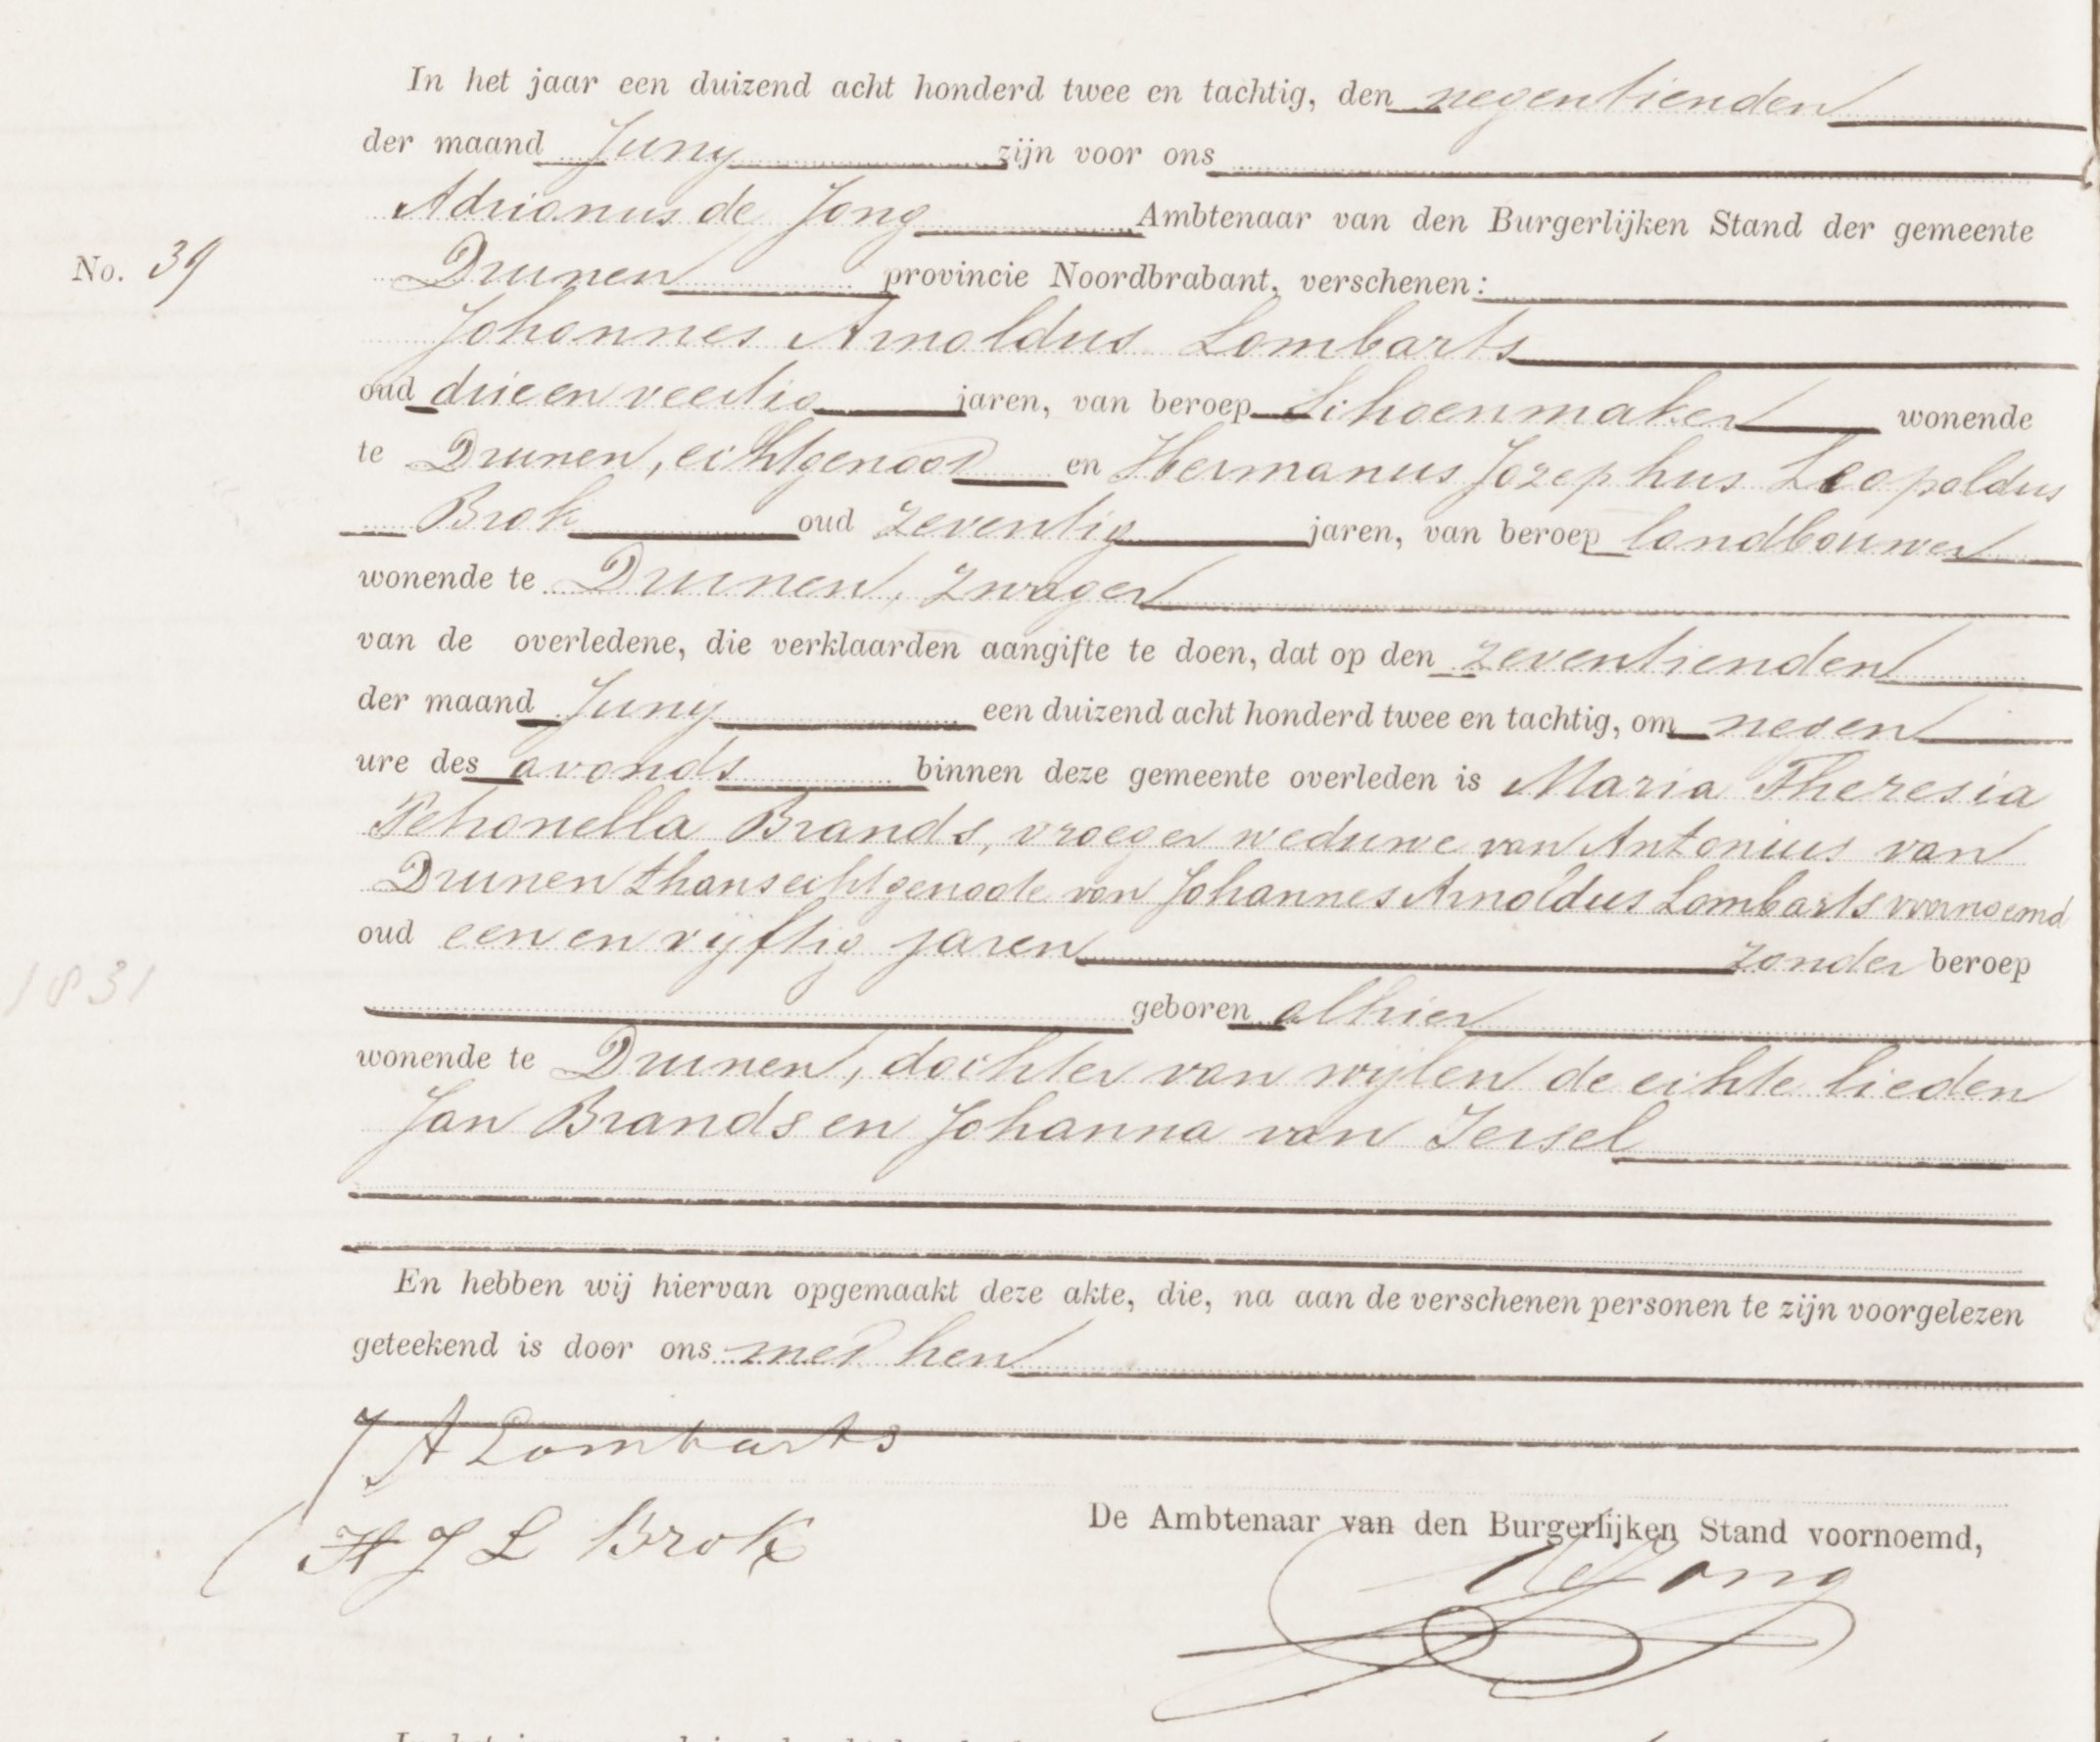 In het jaar een duizend acht honderd twee en tachtig, den negentienden
der maand Juny zijn voor ons
Adrianus de Jong Ambtenaar van den Burgerlijken Stand der gemeente
No. 39 Drunen provincie Noordbrabant, verschenen:
Johannes Arnoldus Lombarts
oud drieenveertig jaren, van beroep Schoenmaker wonende
te Drunen, echtgenoot en Hermanus Jozephus Leopoldus
Brok oud zeventig jaren, van beroep landbouwer
wonende te Drunen, zwager
van de overledene, die verklaarden aangifte te doen, dat op den zeventienden
der maand Juny een duizend acht honderd twee en tachtig, om negen
ure des avonds binnen deze gemeente overleden is Maria Theresia
Petronella Brands, vroeger weduwe van Antonius van
Drunen thans echtgenoote van Johannes Arnoldus Lombarts voornoemd
oud een en vijftig jaren zonder beroep
1831
geboren alhier
wonende te Drunen, dochter van wijlen de echte lieden
Jan Brands en Johanna van Iersel
En hebben wij hiervan opgemaakt deze akte, die, na aan de verschenen personen te zijn voorgelezen
geteekend is door ons met hen
J A Lombarts
H J L Brok
De Ambtenaar van den Burgerlijken Stand voornoemd,
de Jong